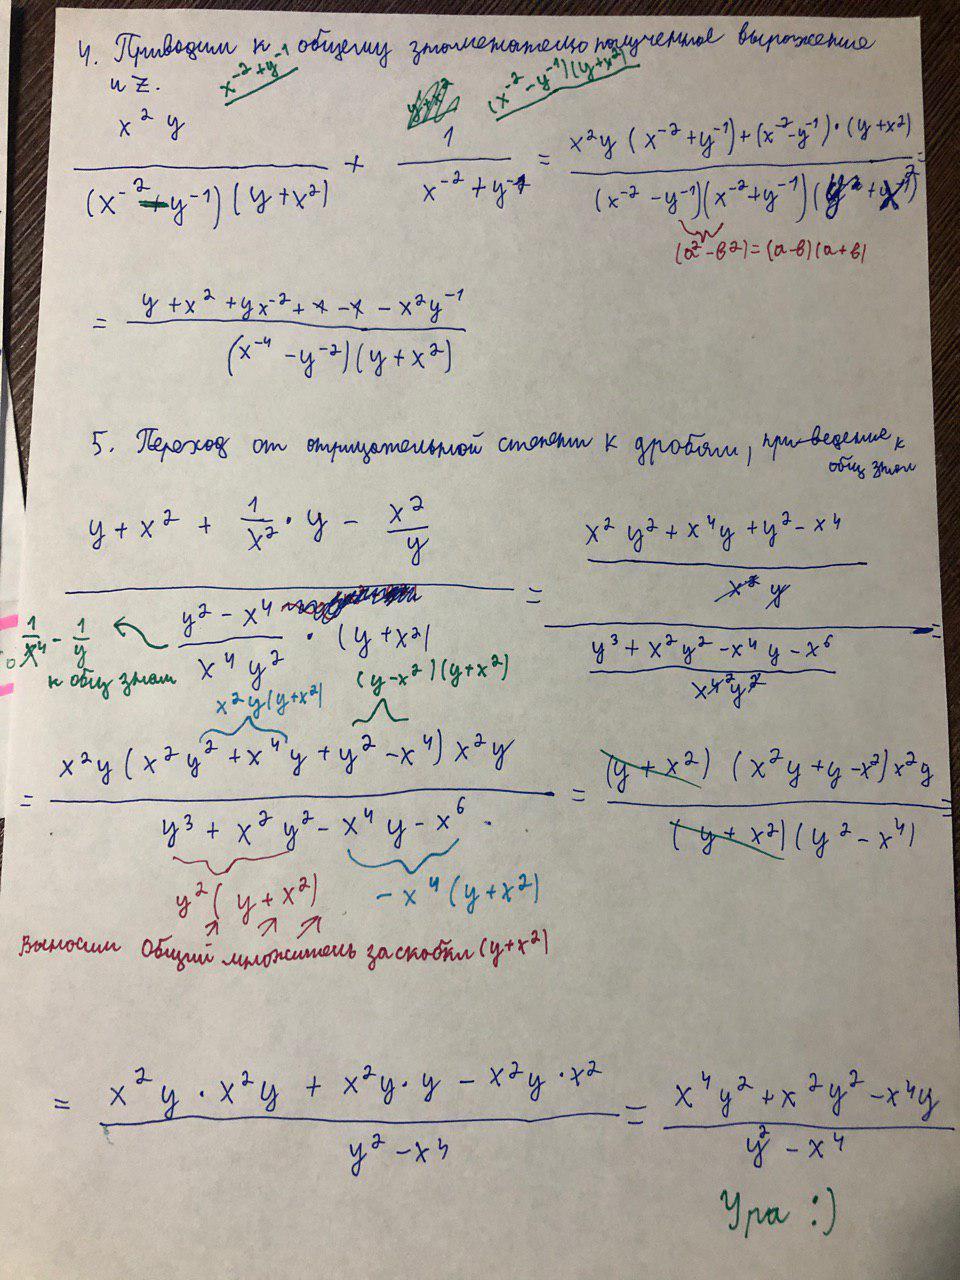 4. Приводим к общему знаменателю полученное выражение
и z.
x⁻² + y⁻¹
y + x²
(x⁻² - y⁻¹)(y + x²)
x² y / (x⁻² - y⁻¹)(y + x²) + 1 / x⁻² + y⁻¹ = x²y (x⁻² + y⁻¹) + (x⁻² - y⁻¹) · (y + x²) / (x⁻² - y⁻¹)(x⁻² + y⁻¹)(y + x²) =
(a² - b²) = (a-b)(a+b)
= y + x² + yx⁻² + 1 - 1 - x²y⁻¹ / (x⁻⁴ - y⁻²)(y + x²)
5. Переход от отрицательной степени к дробям, приведение к
общ знам
y + x² + 1/x² · y - x²/y / y² - x⁴ / x⁴ y² · (y + x²) = x² y² + x⁴y + y² - x⁴ / x² y / y³ + x² y² - x⁴ y - x⁶ / x⁴ y² =
1/x⁴ - 1/y
к общ знам
x²y(y+x²)
(y - x²)(y + x²)
= x²y (x² y² + x⁴ y + y² - x⁴) x² y / y³ + x² y² - x⁴ y - x⁶ = (y + x²) (x² y + y - x²) x² y / (y + x²)(y² - x⁴) =
y² (y + x²)
- x⁴ (y + x²)
Выносим общий множитель за скобки (y + x²)
= x² y · x² y + x² y · y - x² y · x² / y² - x⁴ = x⁴ y² + x² y² - x⁴ y / y² - x⁴
Ура :)